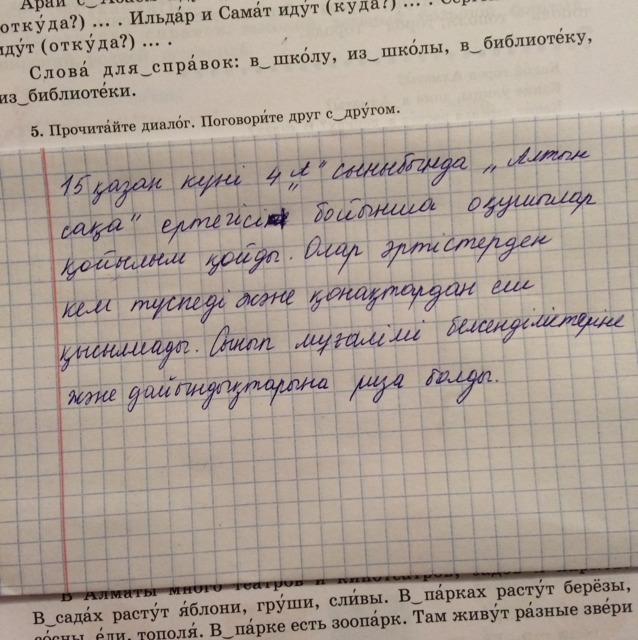 Арай с‿
отку́да?) ... . Ильда́р и Сама́т иду́т (куда́?) ... .
иду́т (отку́да?) ... .
Слова́ для‿спра́вок: в‿шко́лу, из‿шко́лы, в‿библиоте́ку,
из‿библиоте́ки.
5. Прочита́йте диало́г. Поговори́те друг с‿дру́гом.
15 қазан күні 4 „А" сыныбында „Алтын
сақа" ертегісі бойынша оқушылар
қойылым қойды. Олар әртістерден
кем түспеді және қонақтардан еш
қысылмады. Сынып мұғалімі белсенділіктеріне
және дайындықтарына риза болды.
В Алматы много театров и кинотеатров,
В‿сада́х расту́т я́блони, гру́ши, сли́вы. В‿па́рках расту́т берёзы,
со́сны, е́ли, тополя́. В‿па́рке есть зоопа́рк. Там живу́т ра́зные зве́ри